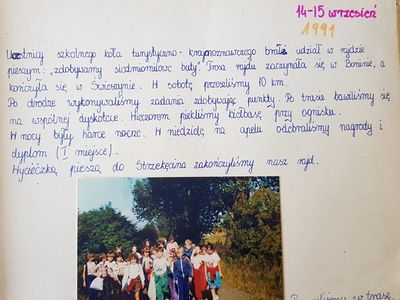 14-15 wrzesień
1991
Uczestnicy szkolnego koła turystyczno-krajoznawczego brali udział w rajdzie
pieszym: „zdobywamy siedmiomilowe buty". Trasa rajdu zaczynała się w Boninie, a
kończyła się w Świeszynie. W sobotę przeszliśmy 10 km.
Po drodze wykonywaliśmy zadania zdobywając punkty. Po trasie bawiliśmy się
na wspólnej dyskotece. Wieczorem piekliśmy kiełbasę przy ognisku.
W nocy były harce nocne. W niedzielę na apelu odebraliśmy nagrody i
dyplom (I miejsce).
Wycieczką pieszą do Strzekęcina zakończyliśmy nasz rajd.
w trasę